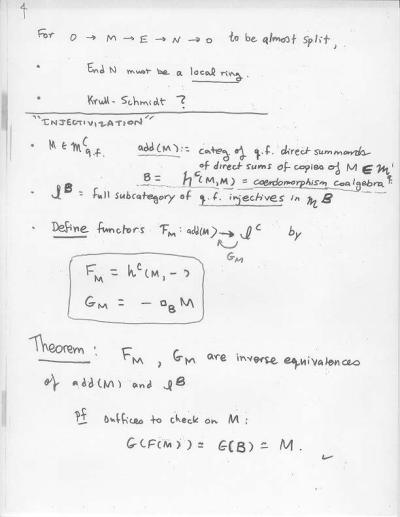 4
For 0 → M → E → N → 0 to be almost split,
• End N must be a local ring.
• Krull-Schmidt ?
"INJECTIVIZATION"
• M ∈ m^C_q.f. add(M) := categ of q.f. direct summands
of direct sums of copies of M ∈ m^C_q.f.
B = h^C(M,M) = coendomorphism coalgebra
• ℓ^B = full subcategory of q.f. injectives in m^B
• Define functors F_M: add(M) → ℓ^C by
G_M
F_M = h^C(M, -)
G_M = - □_B M
Theorem: F_M, G_M are inverse equivalences
of add(M) and ℓ^B
pf Suffices to check on M:
G(F(M)) = G(B) = M. ✓